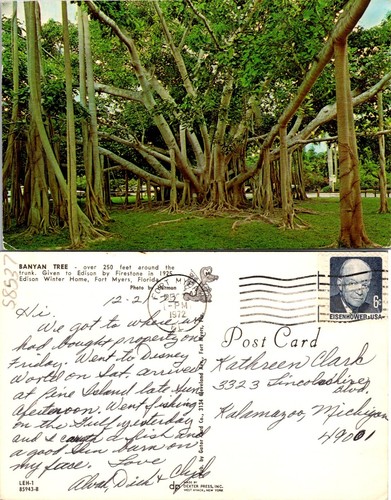 BANYAN TREE - over 250 feet around the
trunk. Given to Edison by Firestone in 1925
Edison Winter Home, Fort Myers, Florida
Photo by
12-2
PM
1972
6¢
EISENHOWER·USA
58527
Hi.
We got to where
had bought property on
Friday. Went to Disney
World on Sat. arrived
at Pine Island late Sun
afternoon. Went fishing
on the Gulf yesterday
and I caught a fish and
a good sun burn on
my face. Love
Alva, Dick &
Post Card
Kathreen Clark
3323 Lincolnshire
Blvd.
Kalamazoo, Michigan
49001
LEH-1
85943-B
dp
MADE BY
DEXTER PRESS, INC.
WEST NYACK, NEW YORK